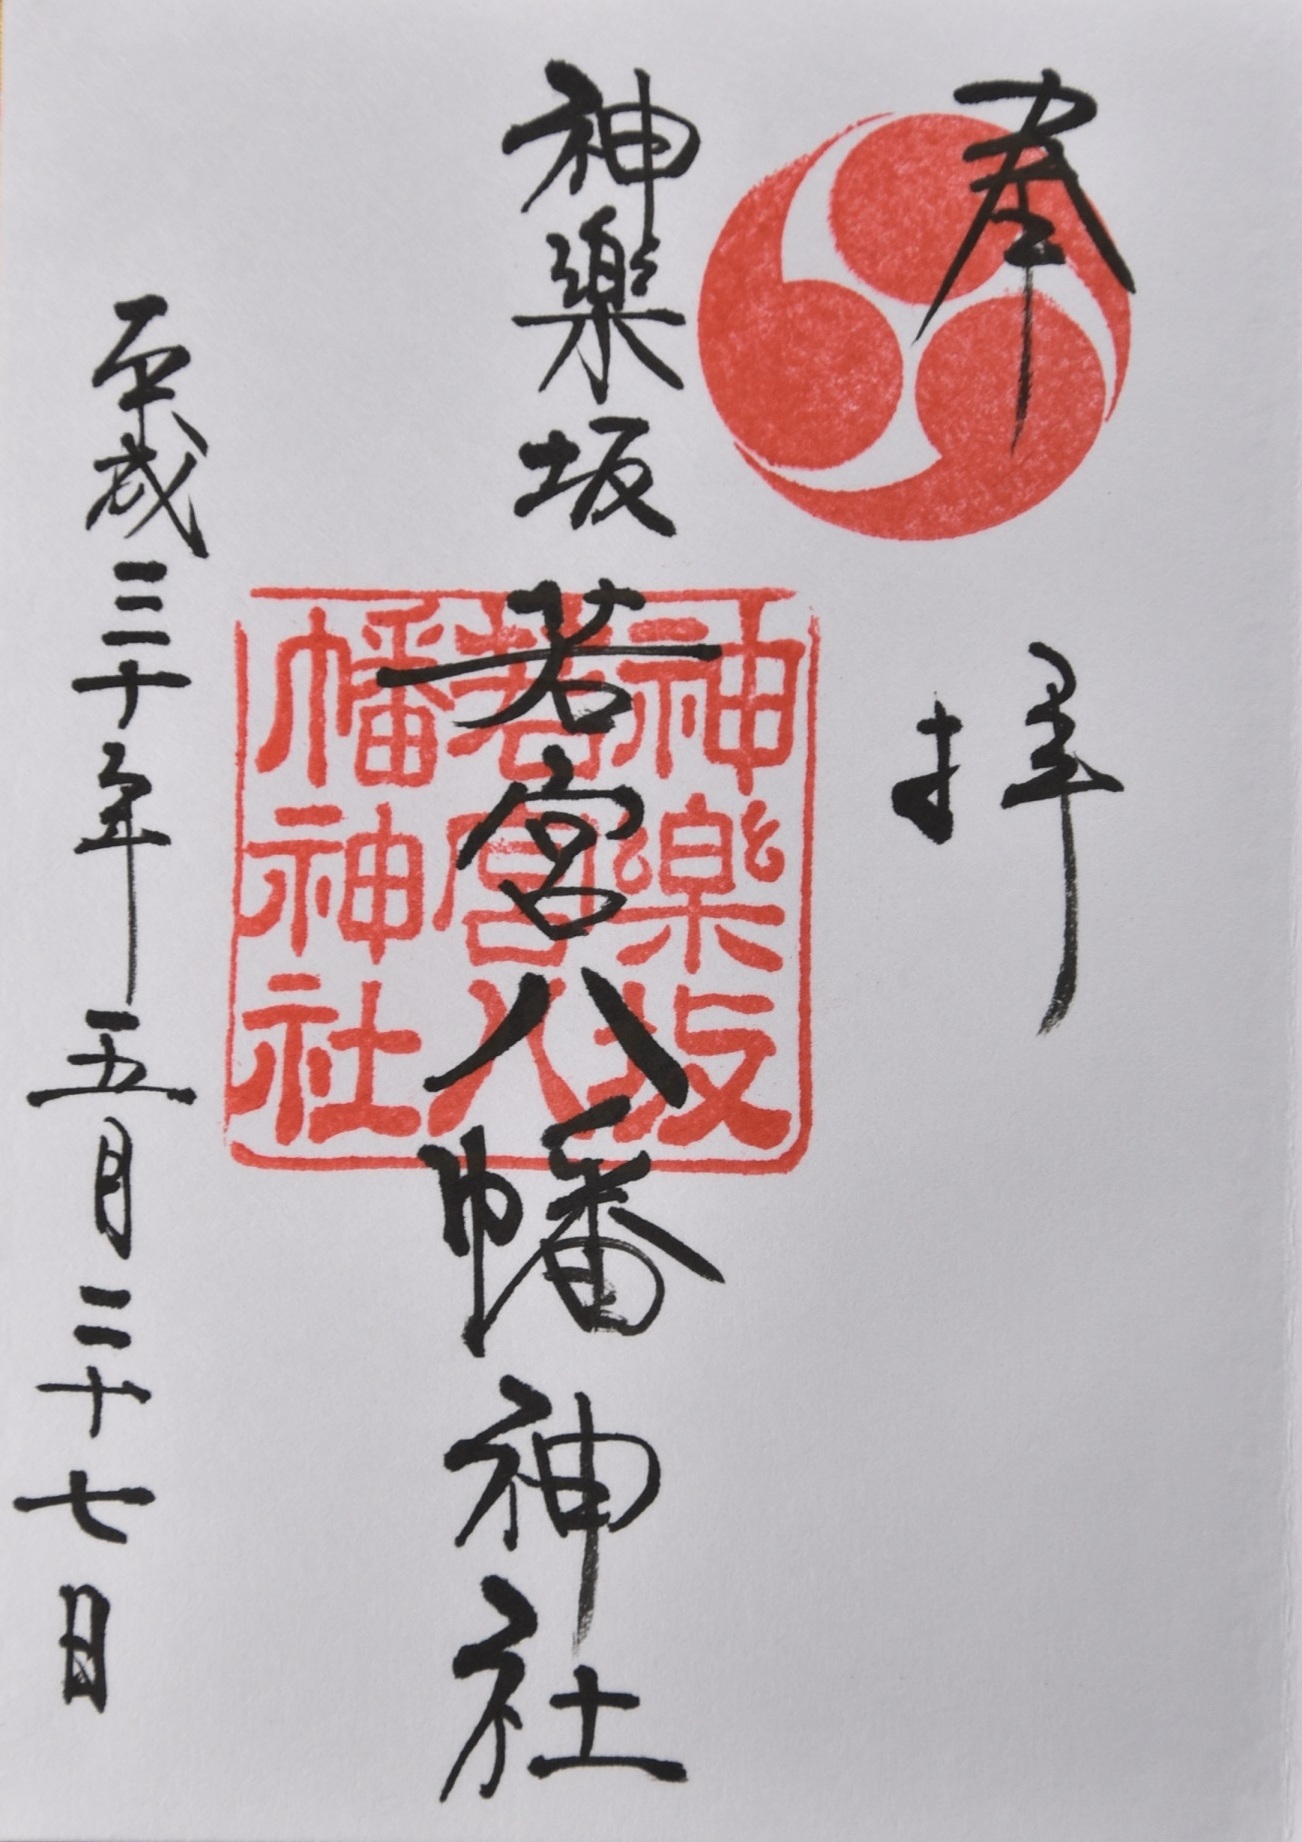 奉拝
神楽坂若宮八幡神社
神楽坂
若宮八
幡神社
平成三十年五月二十七日